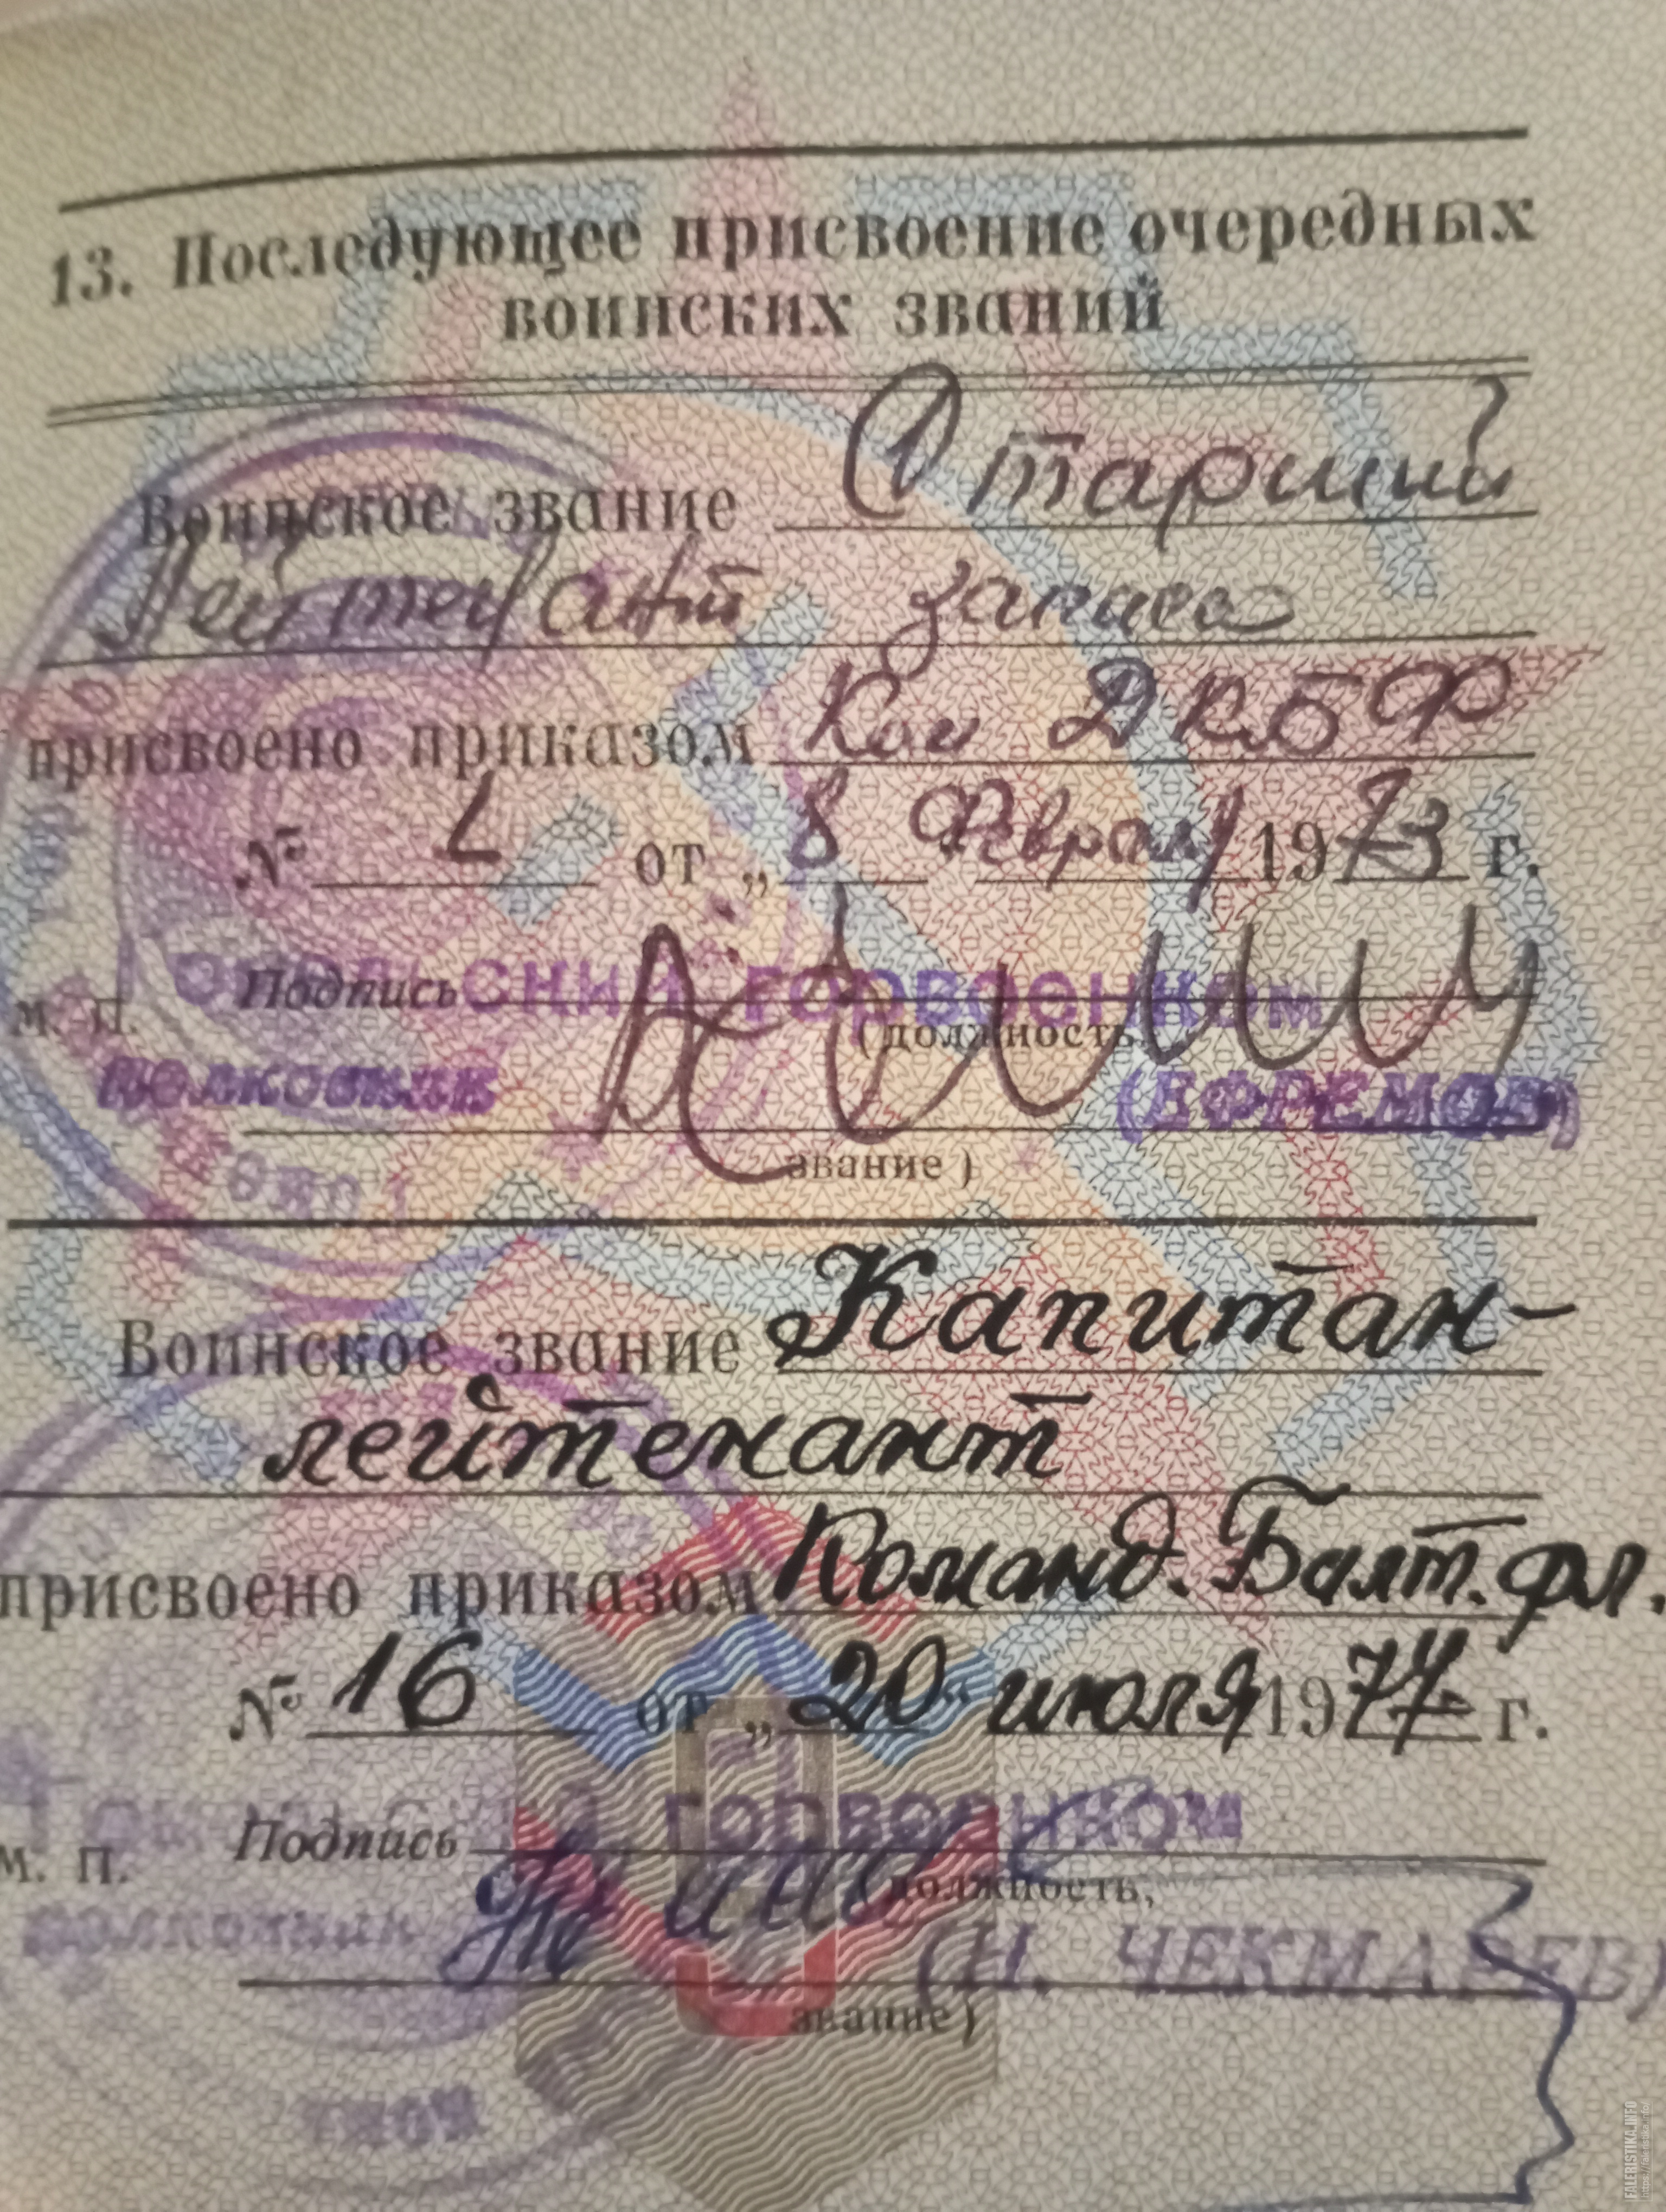 13. Последующее присвоение очередных
воинских званий
Воинское звание Старший
Лейтенант запаса
присвоено приказом Ком ДКБФ
№ от „8 Февраля 1973 г.
м. п. Подпись горвоенком
(должность,
полковник (ЕФРЕМОВ)
звание)
Воинское звание Капитан-
лейтенант
присвоено приказом Команд. Балт. фл.
№ 16 от „20" июля 1977 г.
м. п. Подпись горвоенком
(должность,
полковник (Н. ЧЕКМАРЕВ)
звание)
FALERISTIKA.INFO